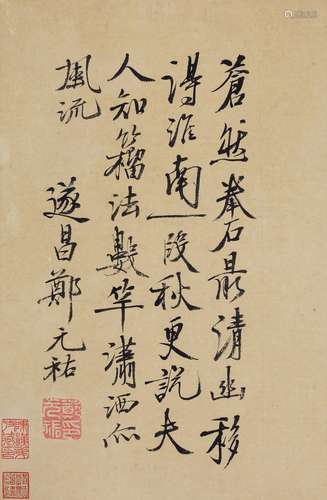 蒼然拳石最清幽移
得淮南一段秋更說夫
人知籀法數竿瀟洒亦
風流
遂昌鄭元祐